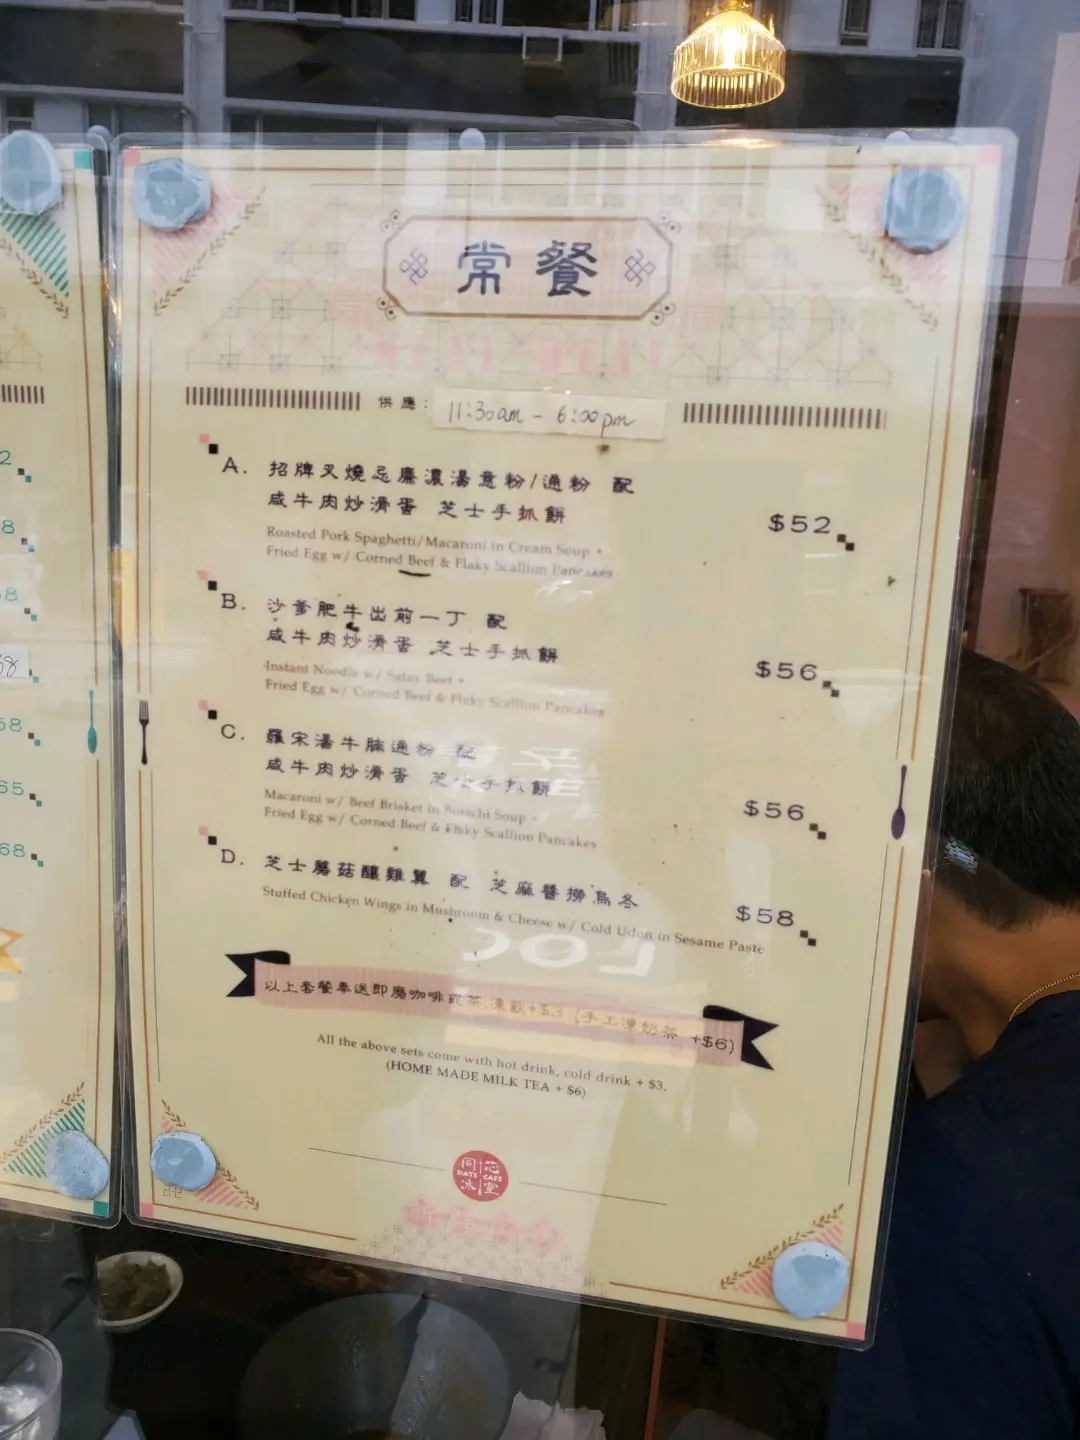 常餐
供應：
11:30am - 6:00pm
A. 招牌叉燒忌廉濃湯意粉/通粉 配
咸牛肉炒滑蛋 芝士手抓餅
$52
Roasted Pork Spaghetti/Macaroni in Cream Soup +
Fried Egg w/ Corned Beef & Flaky Scallion Pancakes
B. 沙爹肥牛出前一丁 配
咸牛肉炒滑蛋 芝士手抓餅
$56
Instant Noodle w/ Satay Beef +
Fried Egg w/ Corned Beef & Flaky Scallion Pancakes
C. 羅宋湯牛腩通粉 配
咸牛肉炒滑蛋 芝士手抓餅
$56
Macaroni w/ Beef Brisket in Borscht Soup +
Fried Egg w/ Corned Beef & Flaky Scallion Pancakes
D. 芝士蘑菇釀雞翼 配 芝麻醬撈烏冬
$58
Stuffed Chicken Wings in Mushroom & Cheese w/ Cold Udon in Sesame Paste
以上套餐奉送即磨咖啡或茶,凍飲+$3 (手工凍奶茶 +$6)
All the above sets come with hot drink, cold drink + $3,
(HOME MADE MILK TEA + $6)
同 芯
DATE CAFE
冰 室
58
65
68